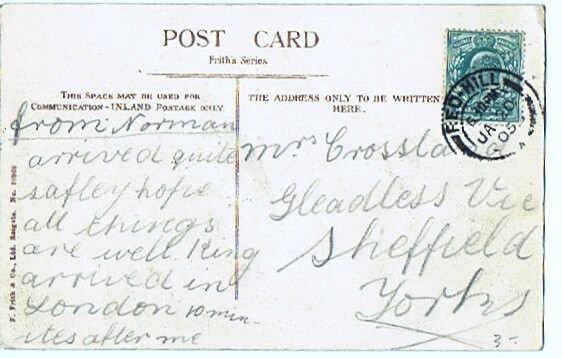 POST CARD
Frith's Series
THIS SPACE MAY BE USED FOR
COMMUNICATION - INLAND POSTAGE ONLY
from Norman
arrived quite
safley hope
all things
are well. King
arrived in
London 10 min-
ites after me
THE ADDRESS ONLY TO BE WRITTEN
HERE.
Mrs Crossla
Gleadless Vic
Sheffield
Yorks
3-
RED HILL
JA 20
05
F. Frith & Co., Ltd. Reigate. No.